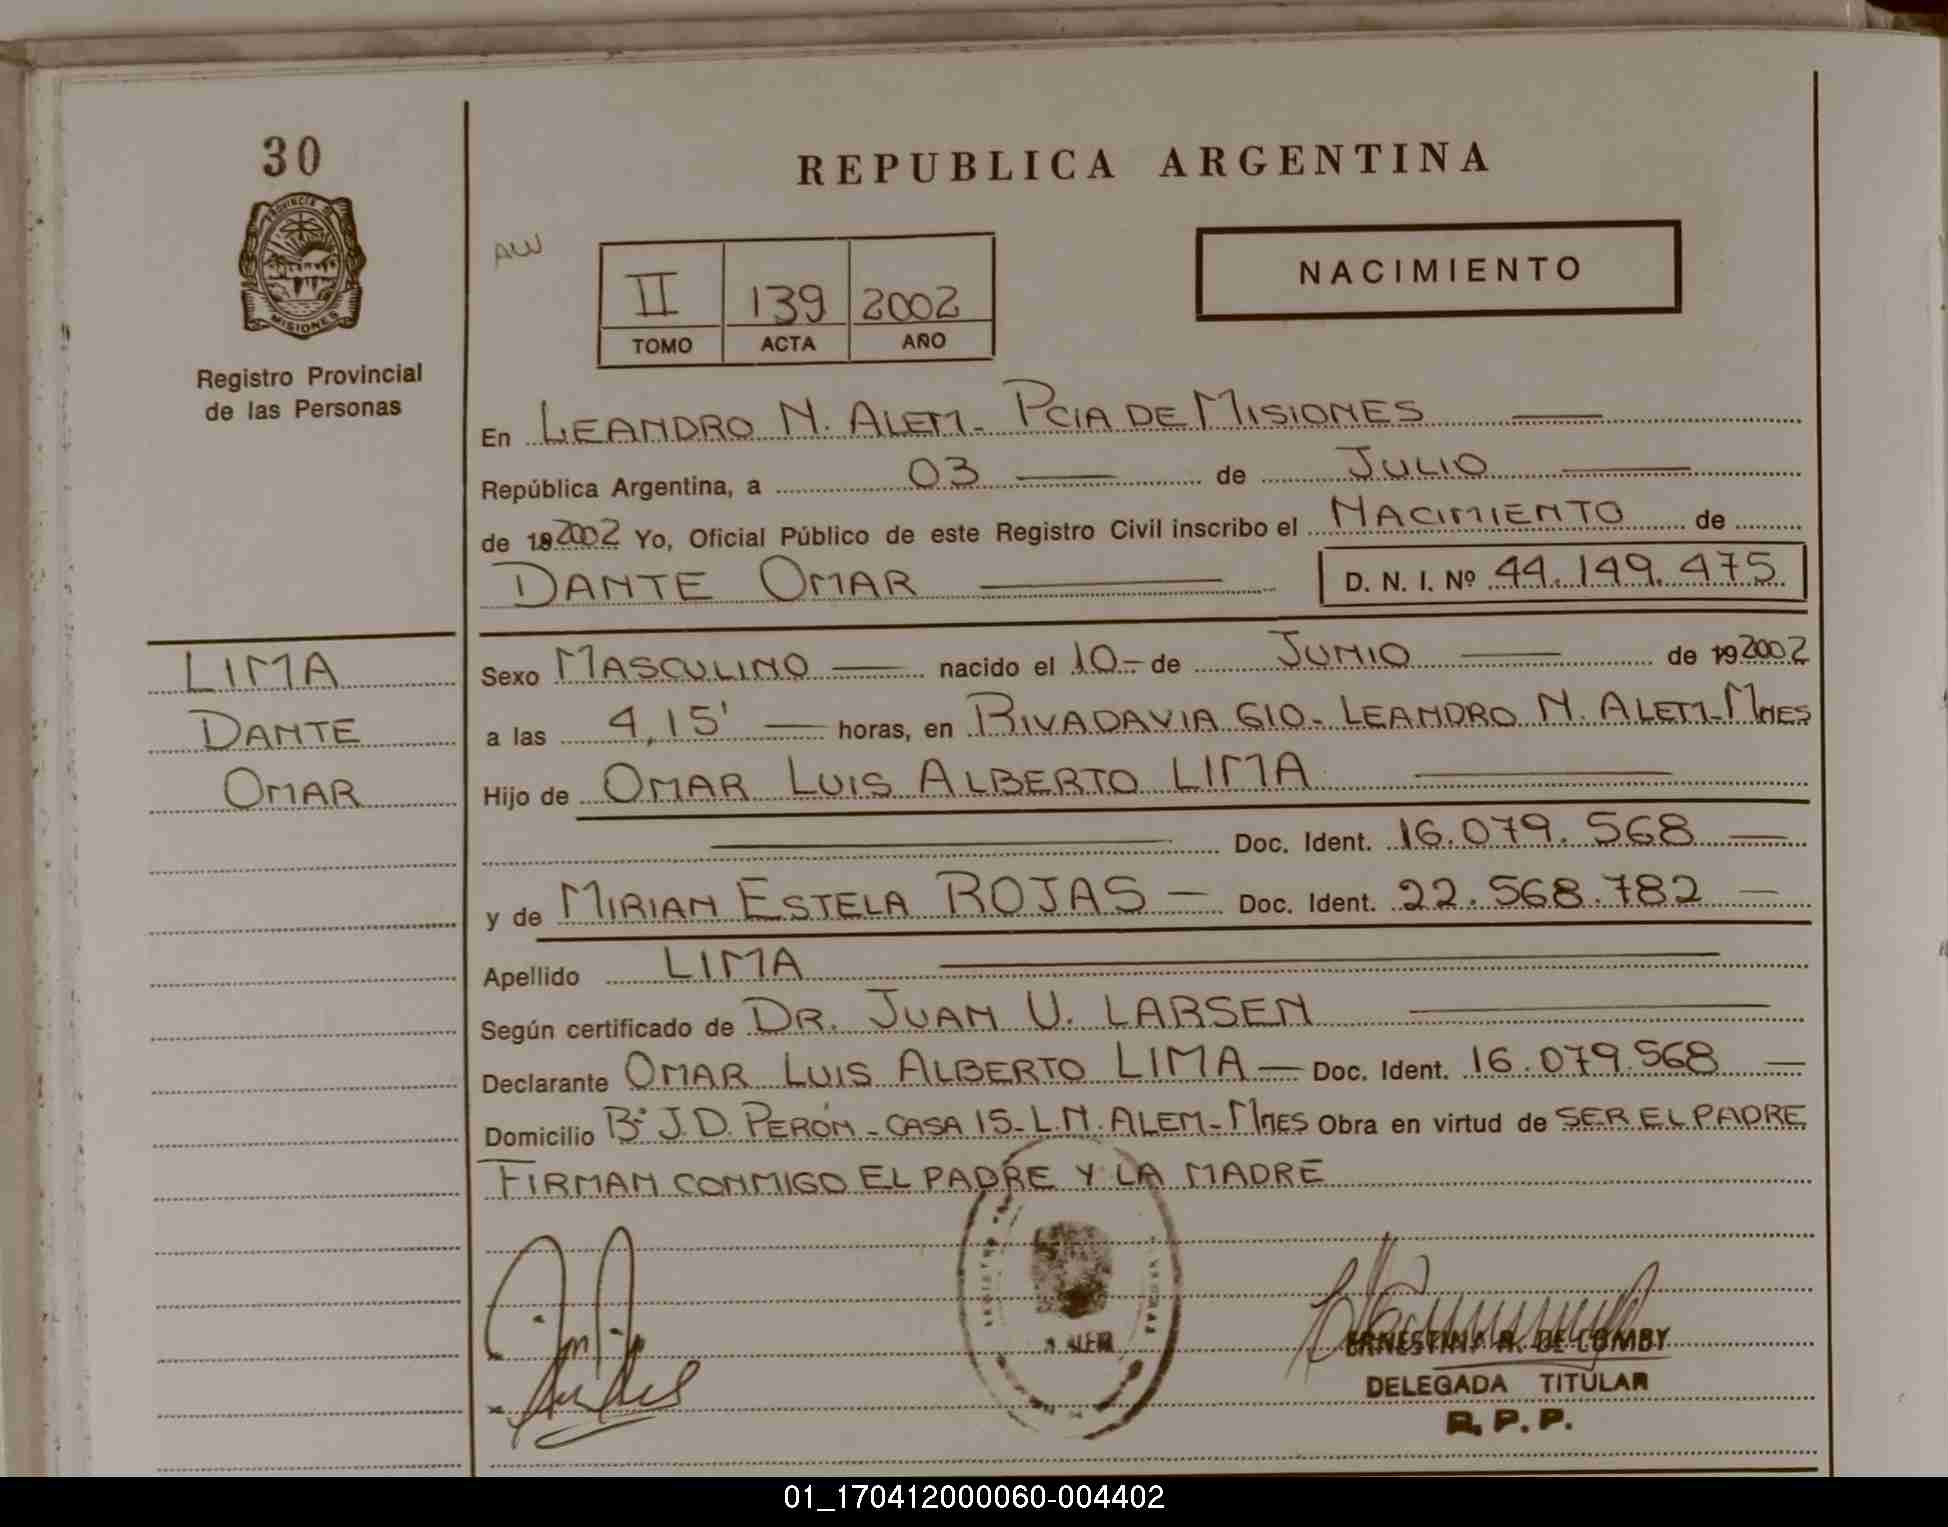 30
PROVINCIA DE
MISIONES
Registro Provincial
de las Personas
REPUBLICA ARGENTINA
AW
II 139 2002
TOMO ACTA AÑO
NACIMIENTO
En LEANDRO N. ALEM - PCIA DE MISIONES
República Argentina, a 03 de JULIO
de 19 2002 Yo, Oficial Público de este Registro Civil inscribo el NACIMIENTO de
DANTE OMAR D. N. I. Nº 44.149.475
LIMA
DANTE
OMAR
Sexo MASCULINO nacido el 10.- de JUNIO de 19 2002
a las 4,15' horas, en RIVADAVIA 610 - LEANDRO N. ALEM - Mnes
Hijo de OMAR LUIS ALBERTO LIMA
Doc. Ident. 16.079.568
y de MIRIAN ESTELA ROJAS - Doc. Ident. 22.568.782
Apellido LIMA
Según certificado de DR. JUAN U. LARSEN
Declarante OMAR LUIS ALBERTO LIMA - Doc. Ident. 16.079.568
Domicilio Bº J.D. PERÓN - CASA 15 - L.N. ALEM - Mnes Obra en virtud de SER EL PADRE
FIRMAN CONMIGO EL PADRE Y LA MADRE
ALEM
ERNESTINA R. DE COMBY
DELEGADA TITULAR
R. P. P.
01_170412000060-004402